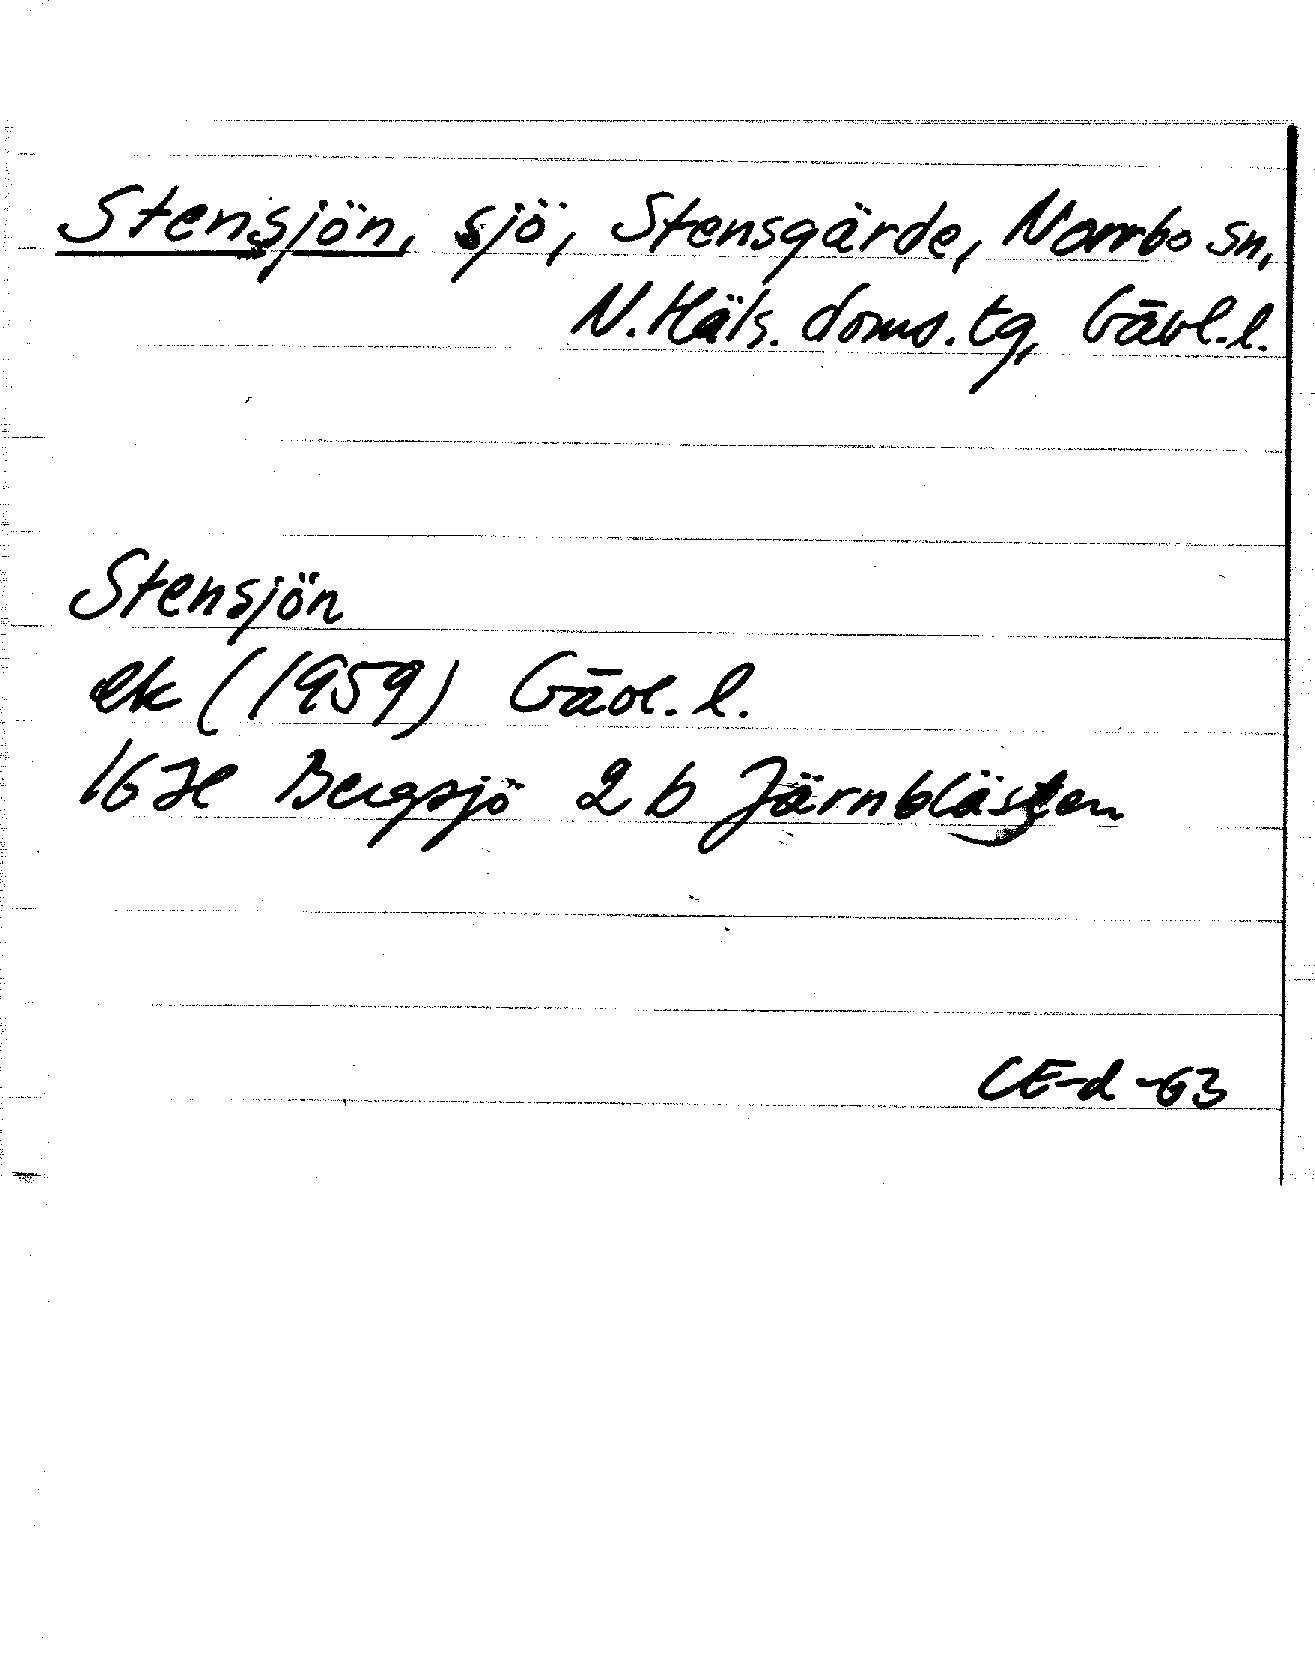 Stensjön, sjö, Stensgärde, Norrbo sn,
N. Häls. doms. tg, Gävl. l.
Stensjön
ek (1959) Gävl. l.
16 H Bergsjö 2 b Järnblästen
CE-d-63